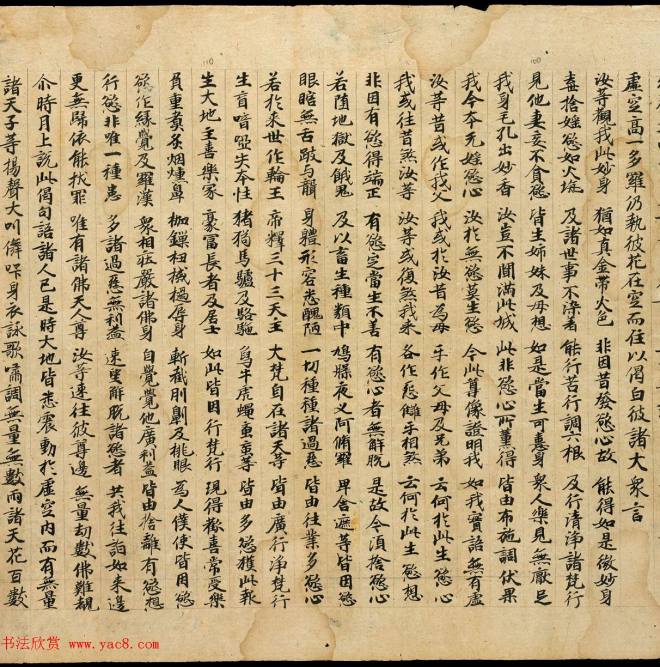 虛空高一多羅仍執彼花在空而住以偈白彼諸大衆言
汝等觀我此妙身 猶如真金帶火色 非因昔發慾心故 能得如是微妙身
棄捨婬慾如火坑 及諸世事不染著 能行苦行調六根 及行清淨諸梵行
見他妻妾不貪慾 皆生姉妹及母想 如是當生可憙身 衆人樂見無厭足
我身毛孔出妙香 汝豈不聞滿此城 此非慾心所薰得 皆由布施調伏果
我今本无婬慾心 汝於無慾莫生慾 今此尊像證明我 如我實語無有虛
汝等昔或作我父 我或於汝昔為母 乎作父母及兄弟 云何於此生慾心
我或往昔煞汝等 汝等或復煞我來 各作惡讎乎相煞 云何於此生慾想
非因有慾得端正 有慾定當生不善 有慾心者無解脫 是故今湏捨慾心
若墮地獄及餓鬼 及以畜生種類中 鳩槃夜义阿脩羅 畀舍遮等皆因慾
眼瞎無舌跛与聾 身體形容悉醜陋 一切種種諸過惡 皆由往業多慾心
若於來世作輪王 帝釋三十三天主 大梵自在諸天等 皆由廣行淨梵行
生盲喑啞失本性 猪狗馬驢及駱駞 烏牛虎蠅蚕䖟等 皆由多慾獲此報
生大地主善樂家 豪冨長者及居士 如此皆因行梵行 現得歡喜常受樂
負重煑炙烟燻鼻 枷鏁杻械檛辱身 斬截刖劓及挑眼 為人僕使皆因慾
欲作緣覺及羅漢 衆相莊嚴諸佛身 自覺覺他廣利益 皆由捨離有慾想
行慾非唯一種患 多諸過惡無利益 速望解脫諸慾者 共我往詣如來邊
更無歸依能拔罪 唯有諸佛天人尊 汝等速往彼尊邊 無量劫數佛難覩
尒時月上說此偈句語諸人已是時大地皆悉震動於虛空內而有無量
諸天子等揚聲大叫儛咋身衣詠歌嘯調無量無數雨諸天花百數
110
100
书法欣赏 www.yac8.com